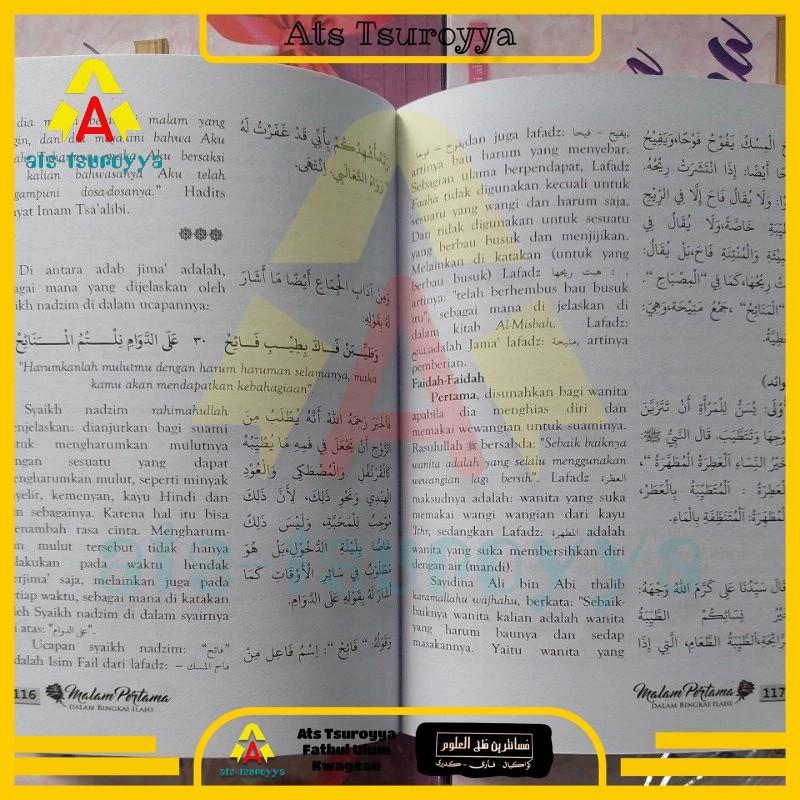 Ats Tsuroyya
ats Tsuroyya
dia malam yang
bahwa Aku
Aku bersaksi
kalian bahwasanya Aku telah
dosa-dosanya." Hadits
Imam Tsa'alibi.
Di antara adab jima' adalah,
mana yang dijelaskan oleh
nadzim di dalam ucapannya:
بِأَنِّي قَدْ غَفَرْتُ لَهُ
رَوَاهُ الثَّعَالَبِي. اِنْتَهَى.
وَمِنْ آدَابِ الْجِمَاعِ أَيْضًا مَا أَشَارَ
لَهُ بِقَوْلِهِ:
وَطَيِّبَنْ فَاكَ بِطِيْبٍ فَائِحْ ٣٠ عَلَى الدَّوَامِ نِلْتُمُ الْمَنَائِحْ
"Harumkanlah mulutmu dengan harum haruman selamanya, maka
kamu akan mendapatkan kebahagiaan"
Syaikh nadzim rahimahullah
menjelaskan: dianjurkan bagi suami
untuk mengharumkan mulutnya
dengan sesuatu yang dapat
mengharumkan mulut, seperti minyak
kemenyan, kayu Hindi dan
sebagainya. Karena hal itu bisa
menambah rasa cinta. Mengharum-
mulut tersebut tidak hanya
dilakukan pada waktu hendak
saja, melainkan juga pada
setiap waktu, sebagai mana di katakan
oleh Syaikh nadzim di dalam syairnya
di atas: "على الدوام".
Ucapan syaikh nadzim: "فائح"
adalah Isim Fail dari lafadz: – فاح المسك
فَأَخْبَرَ رَحِمَهُ اللهُ أَنَّهُ يُطْلَبُ مِنَ
الزَّوْجِ أَنْ يَجْعَلَ فِي فَمِهِ مَا يُطَيِّبُهُ
كَالْقَرَنْفُلِ وَالْمُصْطَكَى وَالْعُوْدِ
الْهِنْدِي وَنَحْوِ ذَلِكَ، لِأَنَّ ذَلِكَ
مُوْجِبٌ لِلْمَحَبَّةِ، وَلَيْسَ ذَلِكَ
خَاصًّا بِلَيْلَةِ الدُّخُوْلِ، بَلْ هُوَ
مَطْلُوْبٌ فِي سَائِرِ الْأَوْقَاتِ كَمَا
أَشَارَ لَهُ بِقَوْلِهِ عَلَى الدَّوَامِ.
وَقَوْلُهُ: " فَائِحْ ": اِسْمُ فَاعِل مِنْ
116 Malam Pertama
DALAM BINGKAI ILAHI
يفوح – فوحا, dan juga lafadz: يفيح – فيحا,
artinya bau harum yang menyebar.
Sebagian ulama berpendapat, Lafadz
Faaha tidak digunakan kecuali untuk
sesuatu yang wangi dan harum saja.
Dan tidak digunakan untuk sesuatu
yang berbau busuk dan menjijikan.
Melainkan di katakan (untuk yang
berbau busuk) Lafadz : هبت ريحها ,
artinya: "telah berhembus bau busuk
itu", sebagai mana di jelaskan di
dalam kitab Al-Misbah. Lafadz:
adalah Jama' lafadz: منيحة, artinya
pemberian.
Faidah-Faidah
Pertama, disunahkan bagi wanita
apabila dia menghias diri dan
memakai wewangian untuk suaminya.
Rasulullah ﷺ bersabda: "Sebaik baiknya
wanita adalah yang selalu menggunakan
wewangian lagi bersih". Lafadz العطرة
maksudnya adalah: wanita yang suka
memakai wangi wangian dari kayu
'Itr, sedangkan Lafadz: المطهرة adalah
wanita yang suka membersihkan diri
dengan air (mandi).
Sayidina Ali bin Abi thalib
karamallahu wajhahu, berkata: "Sebaik-
baiknya wanita kalian adalah wanita
yang harum baunya dan sedap
masakannya. Yaitu wanita yang
الْمِسْكُ يَفُوْحُ فَوْحًا، وَيَفِيْحُ
أَيْضًا: إِذَا انْتَشَرَتْ رِيْحُهُ.
وَلَا يُقَالُ فَاحَ إِلَّا فِي الرِّيْحِ
الطَّيِّبَةِ خَاصَّةً، وَلَا يُقَالُ فِي
الْخَبِيْثَةِ وَالْمُنْتِنَةِ فَاحَ، بَلْ يُقَالُ:
هَبَّتْ رِيْحُهَا، كَمَا فِي "الْمِصْبَاحِ".
"الْمَنَائِحُ"، جَمْعُ مَنِيْحَةٍ، وَهِيَ:
الْعَطِيَّةُ.
يُسَنُّ لِلْمَرْأَةِ أَنْ تَتَزَيَّنَ
لِزَوْجِهَا وَتَتَطَيَّبَ. قَالَ النَّبِيُّ ﷺ:
خَيْرُ النِّسَاءِ الْعَطِرَةُ الْمُطَهَّرَةُ"،
الْعَطِرَةُ: الْمُتَطَيِّبَةُ بِالْعِطْرِ،
الْمُطَهَّرَةُ: الْمُتَنَظِّفَةُ بِالْمَاءِ.
قَالَ سَيِّدُنَا عَلِي كَرَّمَ اللهُ وَجْهَهُ:
خَيْرُ نِسَائِكُمُ الطَّيِّبَةُ
الرَّائِحَةِ، الطَّيِّبَةُ الطَّعَامِ، الَّتِي إِذَا
Malam Pertama 117
DALAM BINGKAI ILAHI
ats-tsuroyya
ats-tsuroyya
Ats Tsuroyya
Fathul Ulum
Kwagean
فسانترين فتح العلوم